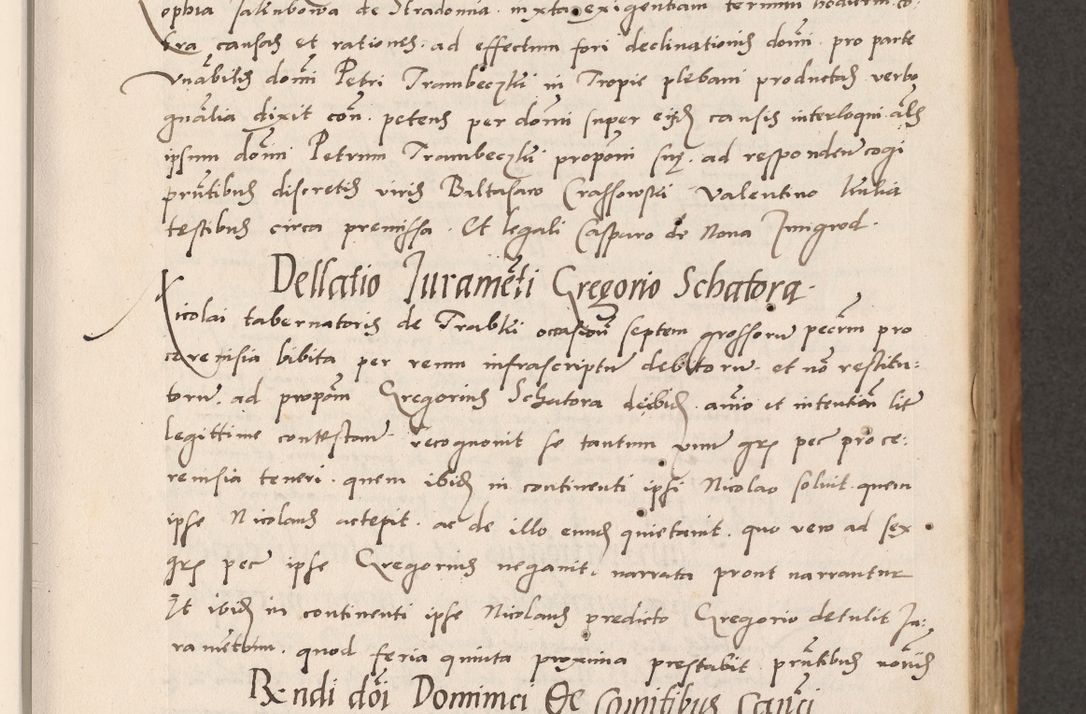 ophia Jakubowa de Stradomia iuxta exigentiam termini hodierni co:
tra causas et rationes ad effectum fori declinationis domi pro parte
Vnabilis domi Petri Trambeczki in Tropie plebani productas verbo
gnalia dixit con petens per domi super eisd causis interloqui als
ipsum domi Petrum Trambeczki proponi suu ad respondendu cogi
pntibus discretis viris Baltasaro Crassowski Valentino Kulia
testibus circa premissa Et legali Casparo de Nova Imigrod
Dellatio Iuramenti Gregorio Schatora
Nicolai tabernatoris de Trabki occasione septem grossoru pecrm pro
cerevisia bibita per reum infrascriptu debitoru et no restitu:
toru ad proponm Gregorius Schatora deibid animo et intention lite
legittime contestan recognovit se tantum unu grs pec pro ce:
revisia teneri quem ibid in continenti ipsi Nicolao solvit quem
ipse Nicolaus acepit ac de illo eundem quietavit quo vero ad sex
grs pec ipse Gregorius negavit narrata prout narrantur
Et ibid in continenti ipse Nicolaus predicto Gregorio detulit Ju:
ramentum quod feria quinta proxima prestabit pntibus
Rendi doi Dominici De Comitibus